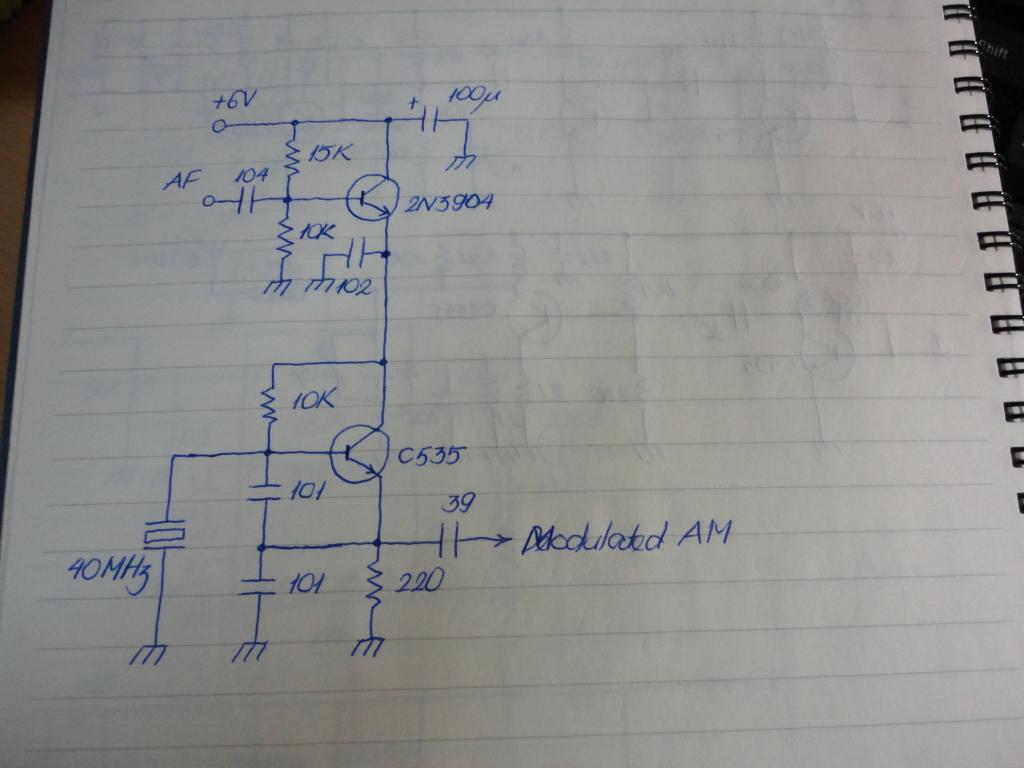 +6V
+
100µ
15K
AF
104
2N3904
10K
102
10K
C535
101
39
Modulated AM
40MHz
101
220
Shift